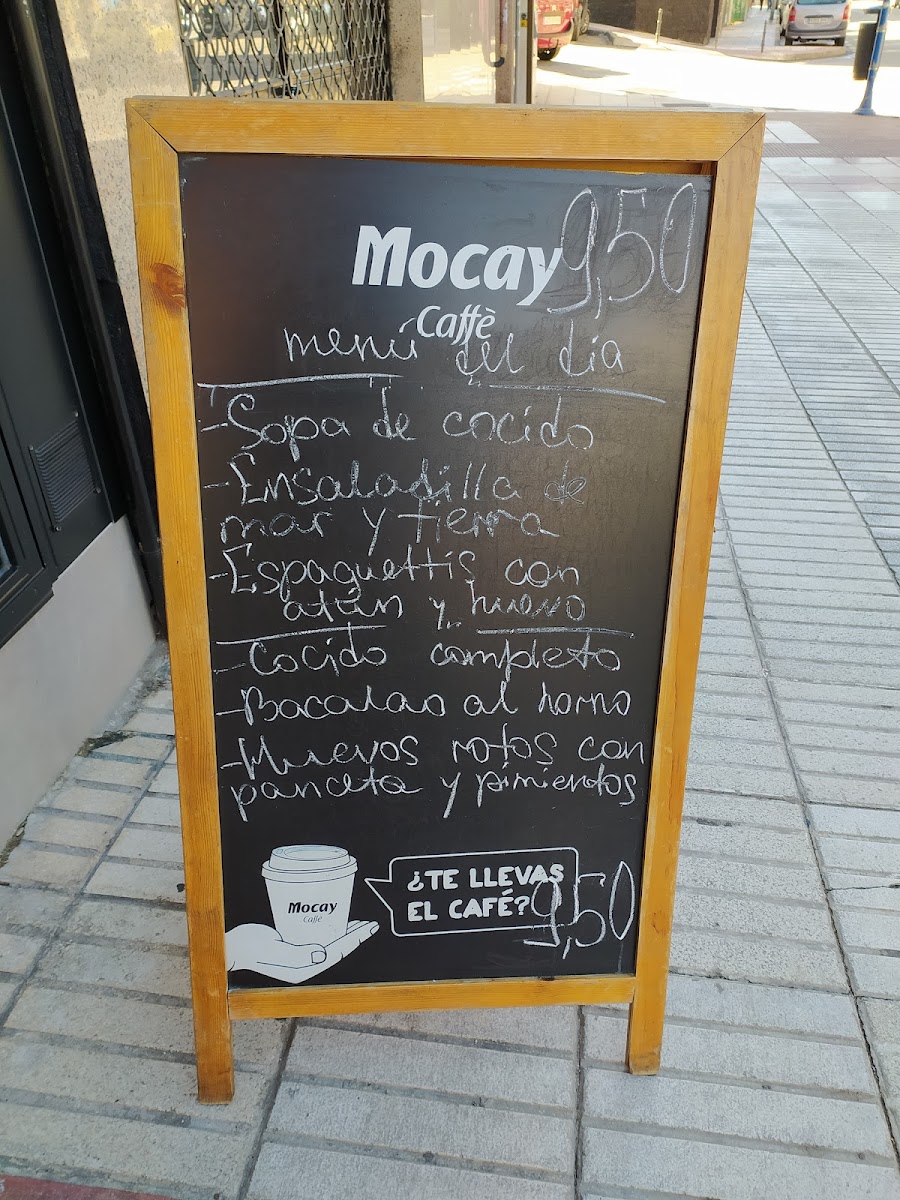 Mocay 9,50
Caffè
menú del dia
-Sopa de cocido
-Ensaladilla de
mar y tierra
-Espaguettis con
atún y huevo
-Cocido completo
-Bacalao al horno
-Huevos rotos con
panceta y pimientos
Mocay
Caffè
¿TE LLEVAS
EL CAFÉ? 9,50